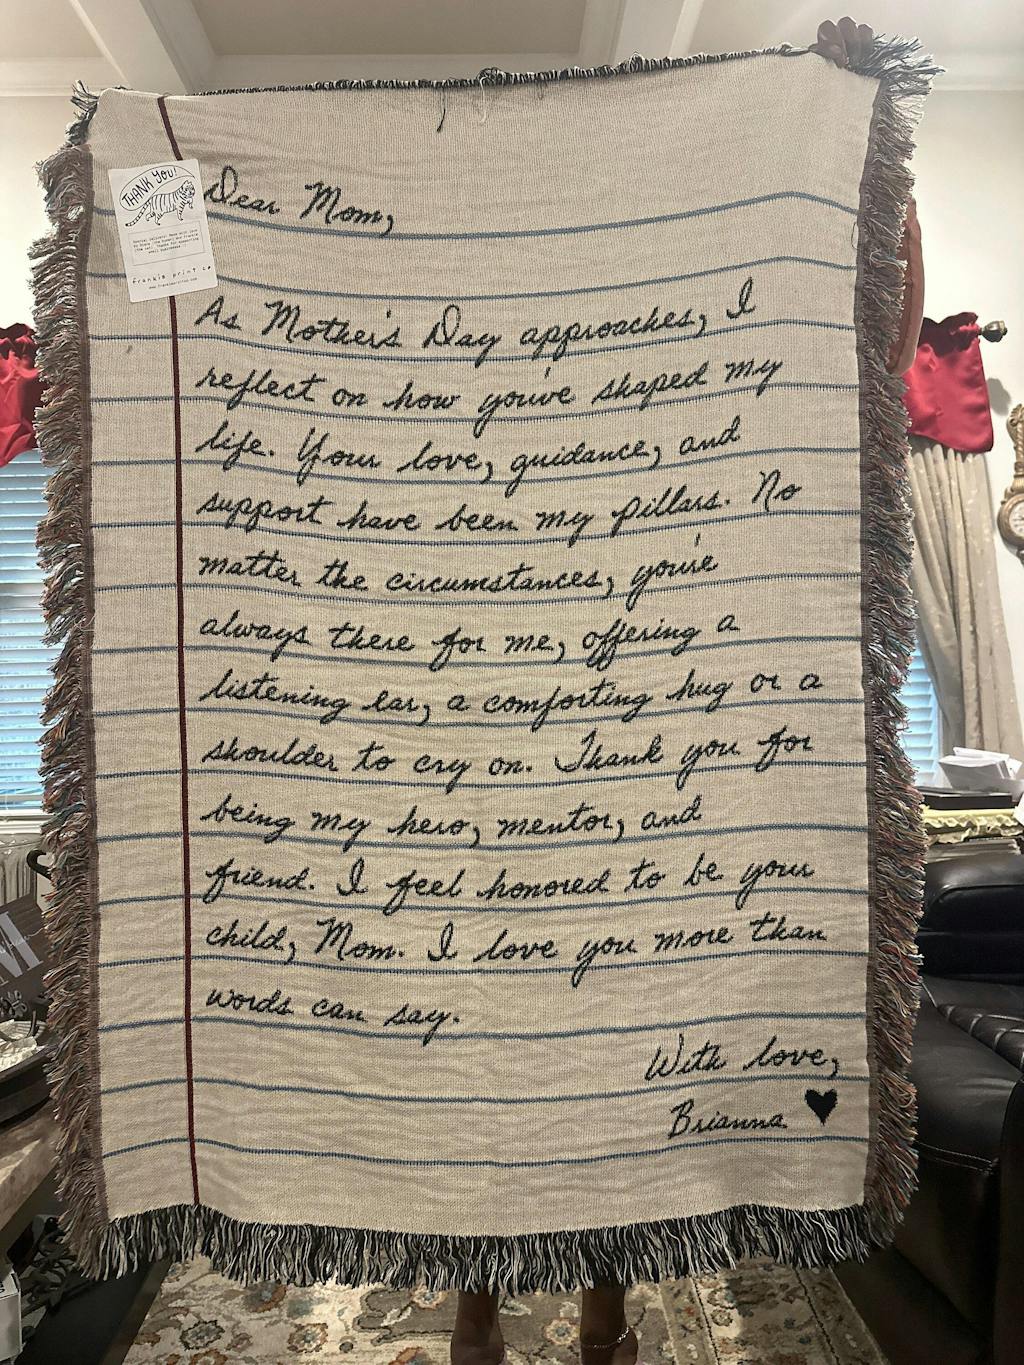 THANK YOU!
frankie print co
Dear Mom,
As Mother's Day approaches, I
reflect on how you've shaped my
life. Your love, guidance, and
support have been my pillars. No
matter the circumstances, you're
always there for me, offering a
listening ear, a comforting hug or a
shoulder to cry on. Thank you for
being my hero, mentor, and
friend. I feel honored to be your
child, Mom. I love you more than
words can say.
With love,
Brianna
M